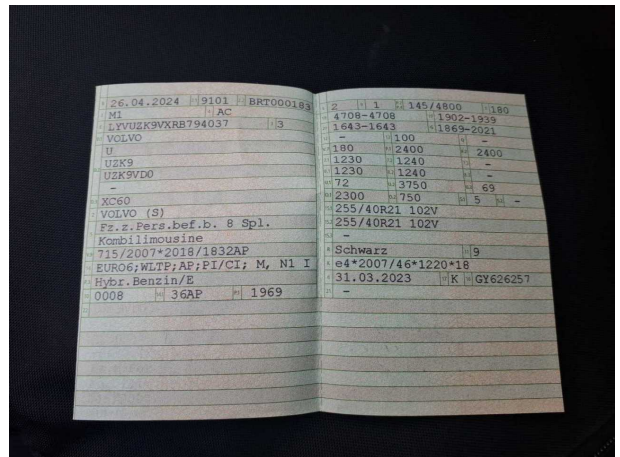 26.04.2024 9101 BRT000183
M1 AC
LYVUZK9VXRB794037 3
VOLVO
U
UZK9
UZK9VD0
-
XC60
VOLVO (S)
Fz.z.Pers.bef.b. 8 Spl.
Kombilimousine
715/2007*2018/1832AP
EURO6;WLTP;AP;PI/CI; M, N1 I
Hybr.Benzin/E
0008 36AP 1969
2 1 145/4800 180
4708-4708 1902-1939
1643-1643 1869-2021
- 100 -
180 2400 2400
1230 1240 -
1230 1240 -
72 3750 69
2300 750 5 -
255/40R21 102V
255/40R21 102V
-
Schwarz 9
e4*2007/46*1220*18
31.03.2023 K GY626257
-